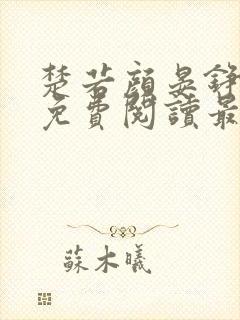 楚若顏晏錚
免費閱讀最
蘇木曦